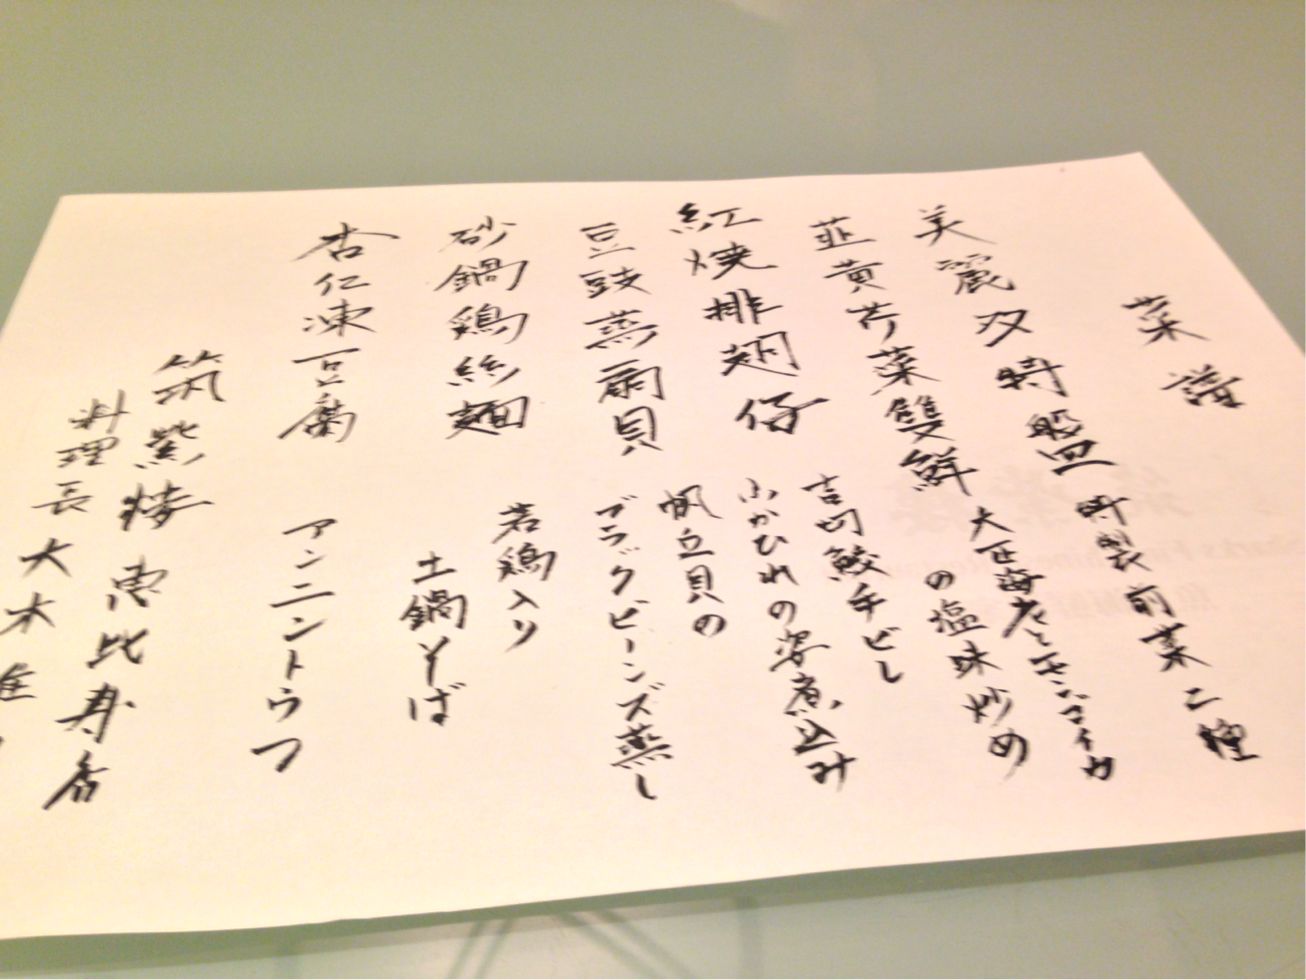 菜譜
美麗双特盤
特製前菜二種
韮黄芹菜雙鮮
大正海老とモンゴイカ
の塩味炒め
紅焼排翅仔
吉切鮫手ビレ
ふかひれの姿煮込み
豆豉蒸扇貝
帆立貝の
ブラックビーンズ蒸し
砂鍋鶏絲麺
若鶏入り
土鍋そば
杏仁凍豆腐
アンニントウフ
筑紫樓 恵比寿店
料理長 大木